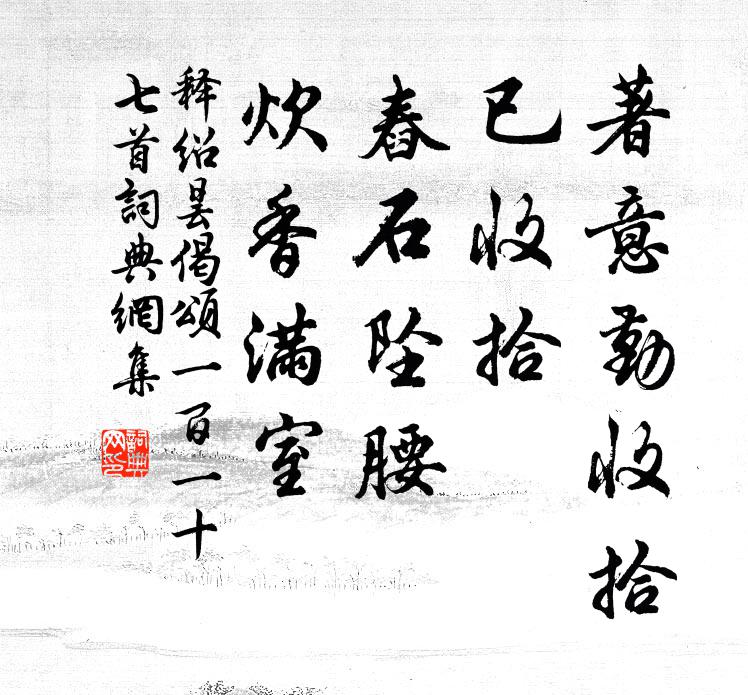 著意勤收拾
已收拾
舂石坠腰
炊香滿室
释绍昙偈頌一百一十
七首詞典網集
詞典網印